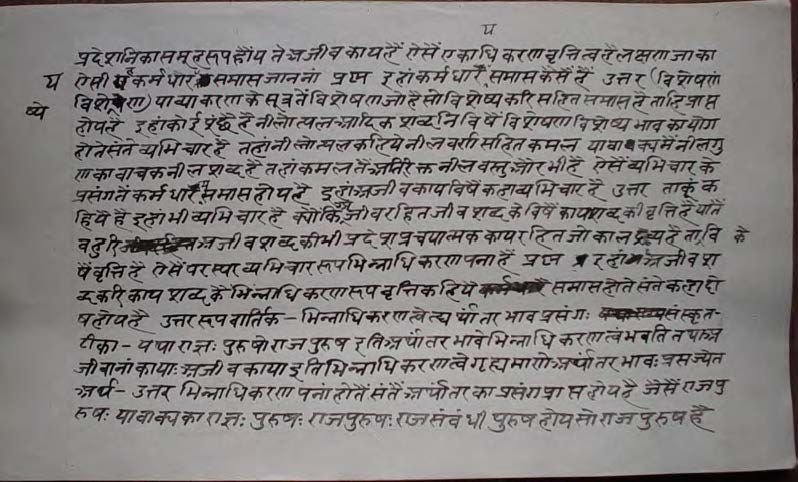 य
प्रदेशनिका समूहरूप होय ते अजीव काय हैं ऐसैं एकाधिकरण वृत्तित्व है लक्षण जाका
य ऐसी कर्मधारै समास जाननां प्रश्न इहां कर्मधारै समास कैसैं है उत्तर (विशेषण
ष्ये विशेषण) या व्याकरण के सूत्रतैं विशेषण जो है सो विशेष्य करि सहित समास है ताहि प्राप्त
होय है इहां कोई पूछै है नीलोत्पल आदिक शब्दनि विषैं विशेषण विशेष्य भाव का योग
होतसंतै व्यभिचार है तहां नीलोत्पल कहिये नील वर्ण सहित कमल या वाक्य मैं नील गु
ण का वाचक नील शब्द है तहां कमल तैं अतिरिक्त नील वस्तु और भी है ऐसैं व्यभिचार के
प्रसंग तैं कर्मधारै समास होय है इहां अजीव काय विषै कहा व्यभिचार है उत्तर ताकूं क
हिये है इहां भी व्यभिचार है क्योंकि जीव रहित जीव शब्द के विषैं काय शब्द की वृत्ति है यातैं
बहुरि अजीव शब्द की भी प्रदेश प्रचयात्मक काय रहित जो काल द्रव्य है ता वि के
षैं वृत्ति है ऐसैं परस्पर व्यभिचार रूप भिन्नाधिकरण पना है प्रश्न इहां अजीव श
ब्द करि काय शब्द कै भिन्नाधिकरण रूप वृत्ति कहिये समास होतेसंतै कहा दो
ष होय है उत्तर रूप वार्तिक – भिन्नाधिकरणत्वेत्यर्थांतरभाव प्रसंगः संस्कृत-
टीका – यथा राज्ञः पुरुषो राजपुरुष इति अर्थांतरभावे भिन्नाधिकरणत्वं भवति तथा अ
जीवानां कायाः अजीवकाया इति भिन्नाधिकरणत्वे गृह्यमाणे अर्थांतरभावः प्रसज्येत
अर्थ – उत्तर भिन्नाधिकरण पनां होतैसंतैं अर्थांतर का प्रसंग प्राप्त होय है जैसैं राजपु
रुषः या वाक्य का राज्ञः पुरुषः राजपुरुषः राज संबंधी पुरुष होय सो राजपुरुष है